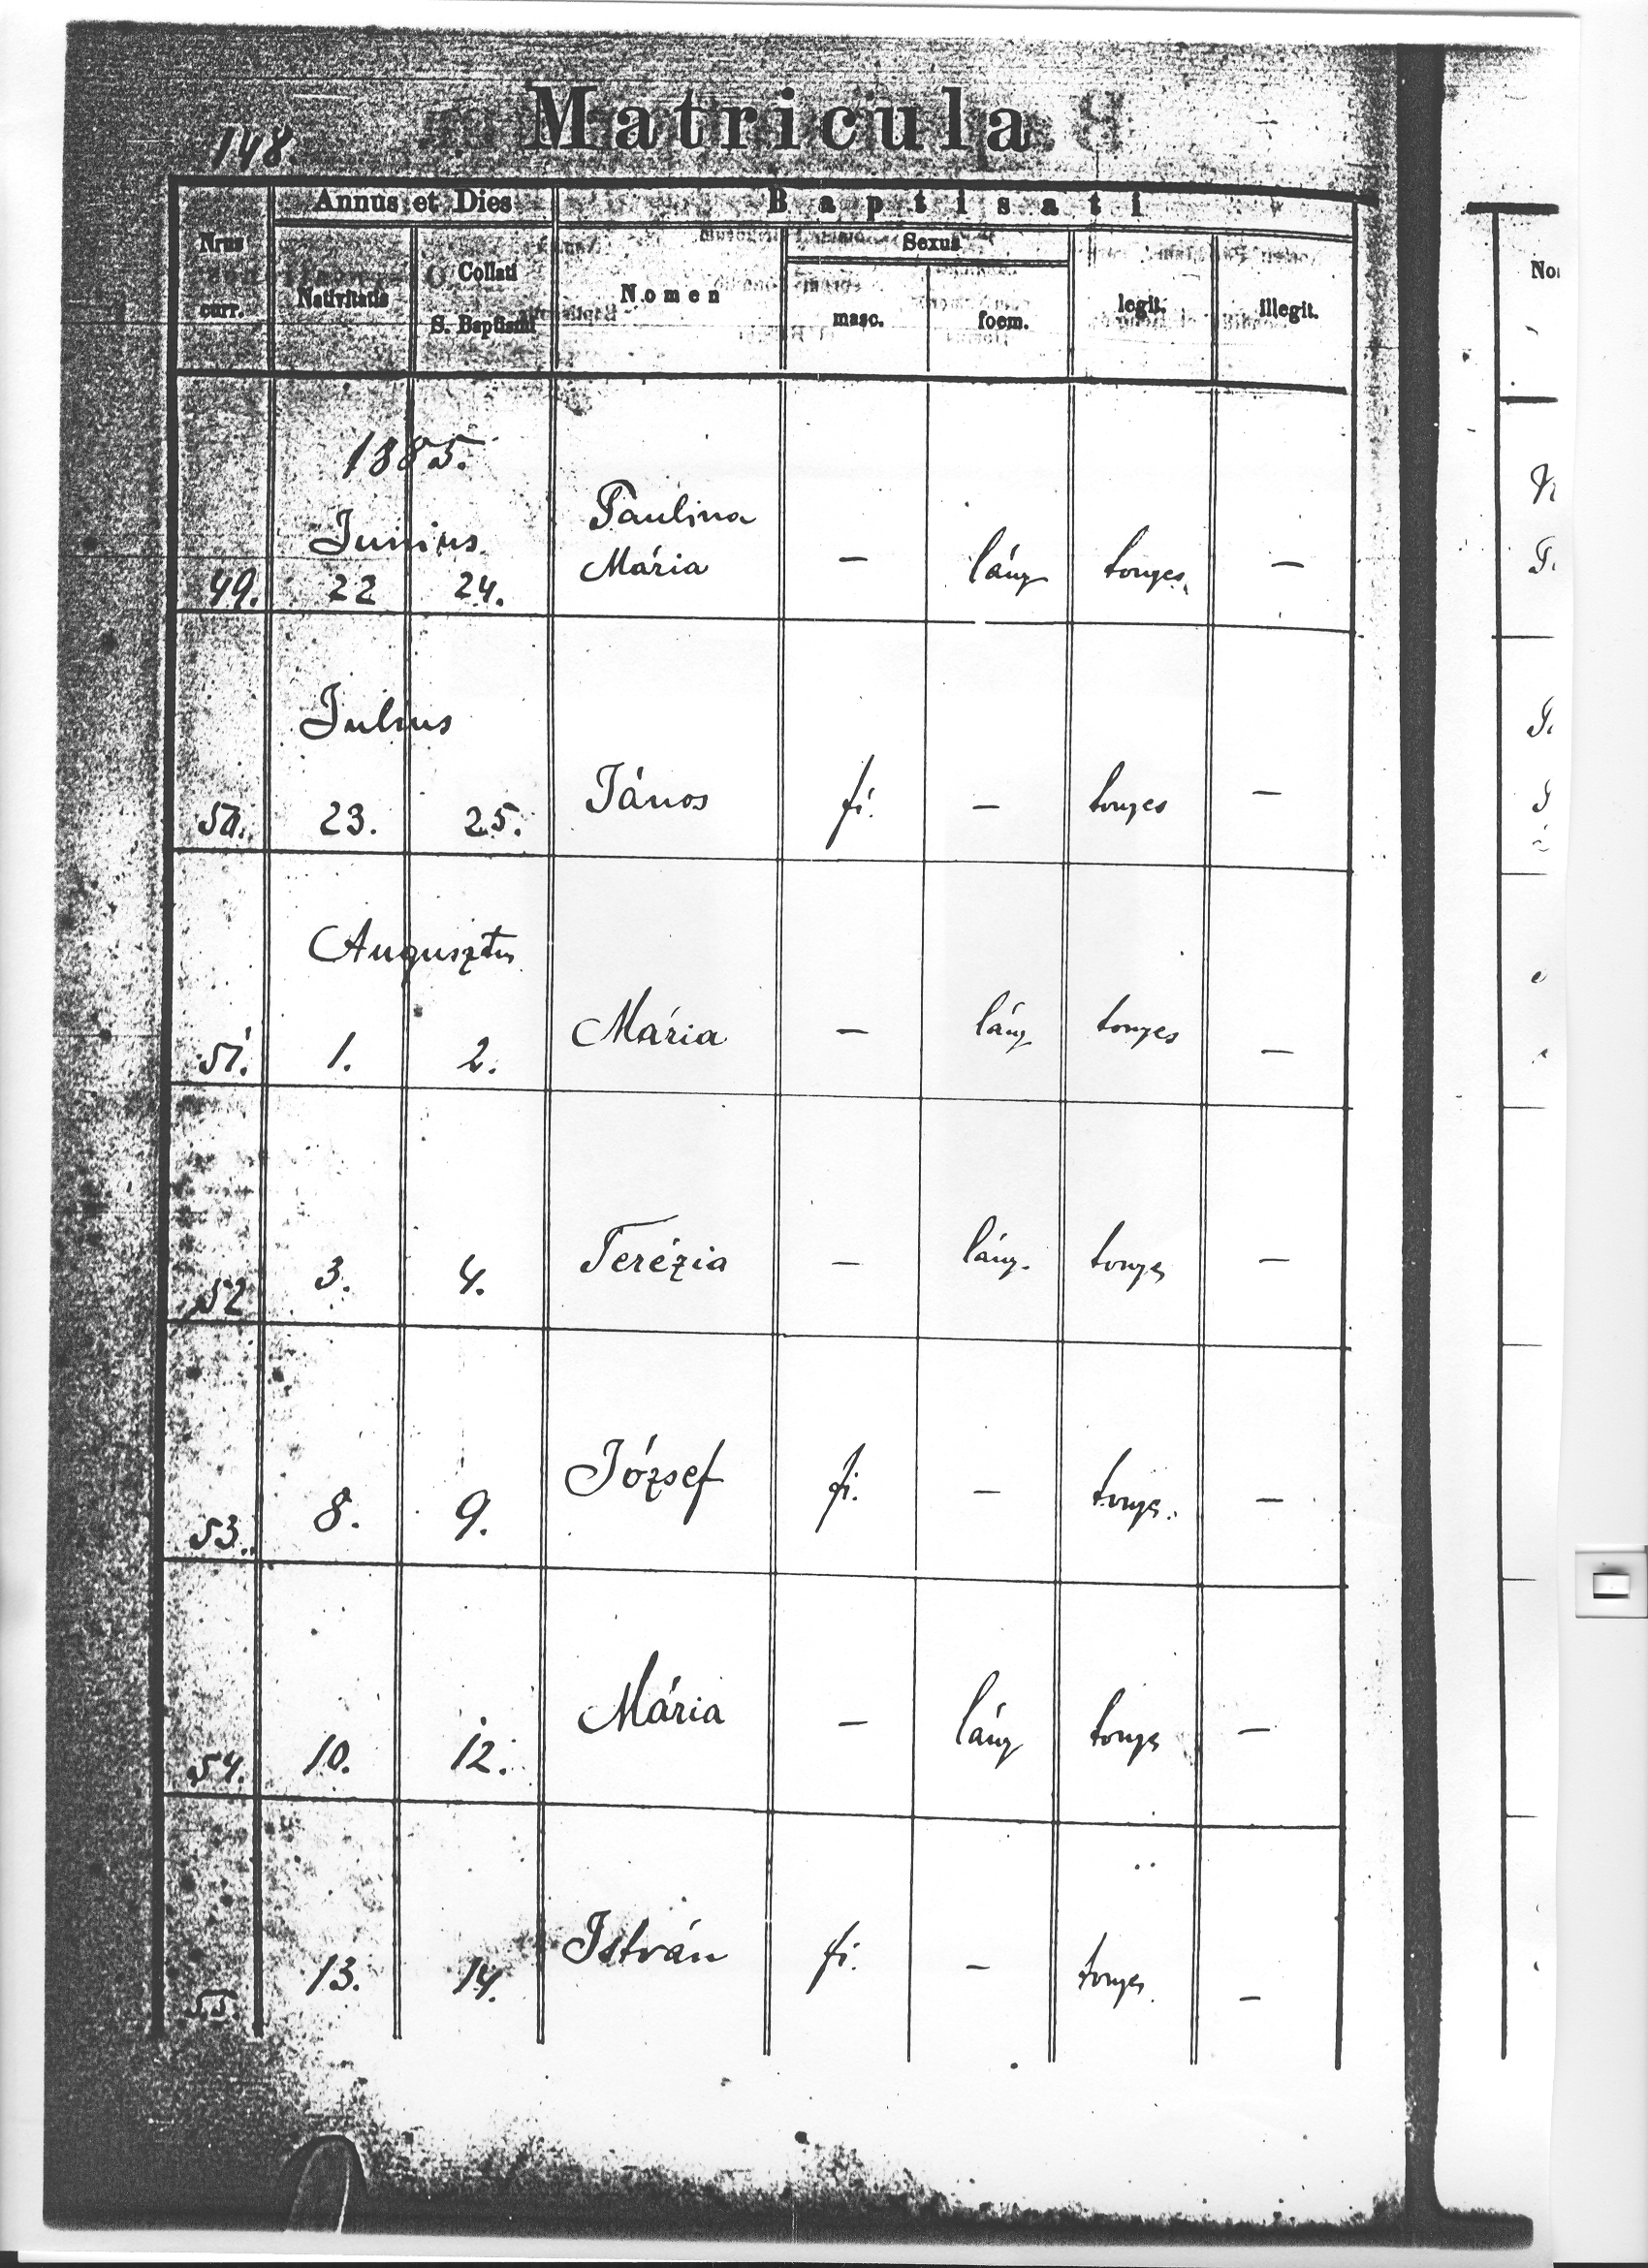 148
Matricula
Annus et Dies
Baptisati
Nrus curr.
Nativitatis
Collati S. Baptismi
Nomen
Sexus
masc.
foem.
legit.
illegit.
1885.
Junius
49. 22 24. Paulina Mária — lány törvyes. —
Julius
50. 23. 25. János fi. — törvyes —
Augusztus
51. 1. 2. Mária — lány törvyes —
52 3. 4. Terézia — lány. törvyes —
53. 8. 9. József fi. — törvys. —
54. 10. 12. Mária — lány törvys —
55. 13. 14. István fi. — törvyes. —